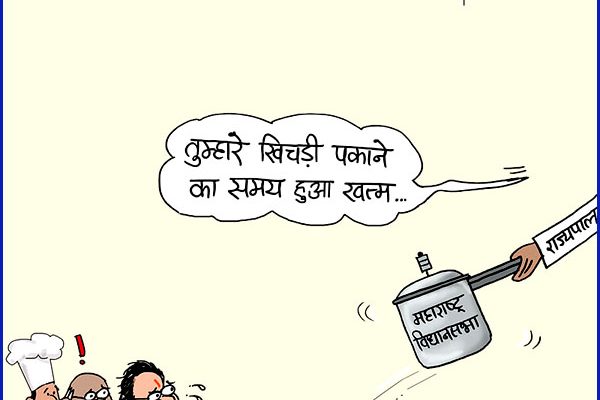 तुम्हारे खिचड़ी पकाने
का समय हुआ खत्म...
राज्यपाल
महाराष्ट्र
विधानसभा
!